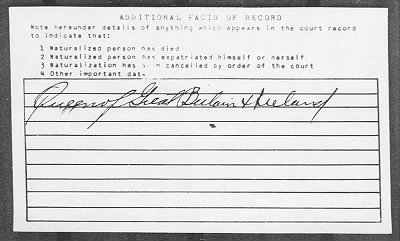 ADDITIONAL FACTS OF RECORD
Note hereunder details of anything which appears in the court record
to indicate that:
1 Naturalized person has died
2 Naturalized person has expatriated himself or herself
3 Naturalization has been cancelled by order of the court
4 Other important data
Queen of Great Britain & Ireland